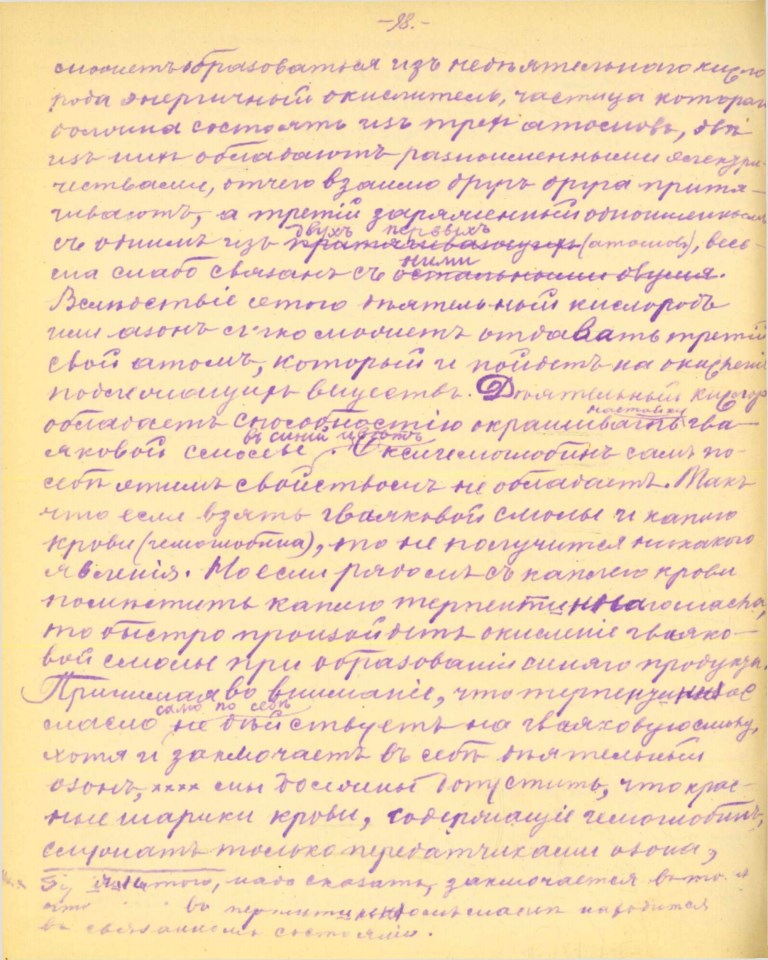 -98.-
можетъ образоваться изъ недѣятельнаго кисло
рода энергичный окислитель, частица котораго
должна состоять изъ трехъ атомовъ, двѣ
изъ нихъ обладаютъ разноименными электри-
чествами, отчего взаимно другъ друга притя-
гиваютъ, а третій заряженный одноименнымъ
двухъ первыхъ
съ однимъ изъ притягивающихъ (атомовъ), весь-
ними
ма слабо связанъ съ остальными двумя.
Вслѣдствіе этого дѣятельный кислородъ
или озонъ легко можетъ отдавать третій
свой атомъ, который и пойдетъ на окисленіе
подлежащихъ веществъ. Дѣятельный кислородъ
обладаетъ способностію окрашивать гва-
настойку
яковой смолы. Оксигемоглобинъ самъ по-
въ синій цвѣтъ
себѣ этимъ свойствомъ не обладаетъ. Такъ
что если взять гваяковой смолы и каплю
крови (гемоглобина), то не получится никакого
явленія. Но если рядомъ съ каплею крови
помѣстить каплю терпентиннаго масла,
то быстро произойдетъ окисленіе гваяко-
вой смолы при образованіи синяго продукта.
Принимая во вниманіе, что терпентинное
само по себѣ
масло не дѣйствуетъ на гваяковую смолу,
хотя и заключаетъ въ себѣ дѣятельный
озонъ, хххх мы должны допустить, что крас-
ные шарики крови, содержащіе гемоглобинъ,
служатъ только передатчиками озона,
этого, надо сказать, заключается въ то
что въ терпентинномъ маслѣ находится
въ связанномъ состояніи.